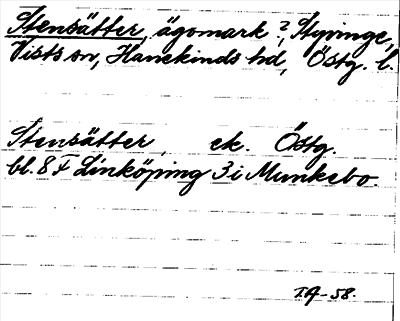 Stensätter, ägomark?, Styvinge,
Vists sn, Hanekinds hd, Östg. l.
Stensätter, ek. Östg.
bl. 8 F Linköping 3 i Munkebo.
I.A-58.